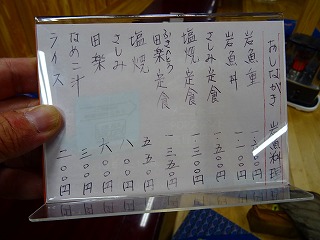 おしながき 岩魚料理
岩魚重 一、二〇〇円
岩魚丼 一、一〇〇円
さしみ定食 一、五〇〇円
塩焼定食 一、二〇〇円
田楽定食 一、三五〇円
塩焼 五五〇円
さしみ 八〇〇円
田楽 六〇〇円
なめこ汁 三〇〇円
ライス 二〇〇円